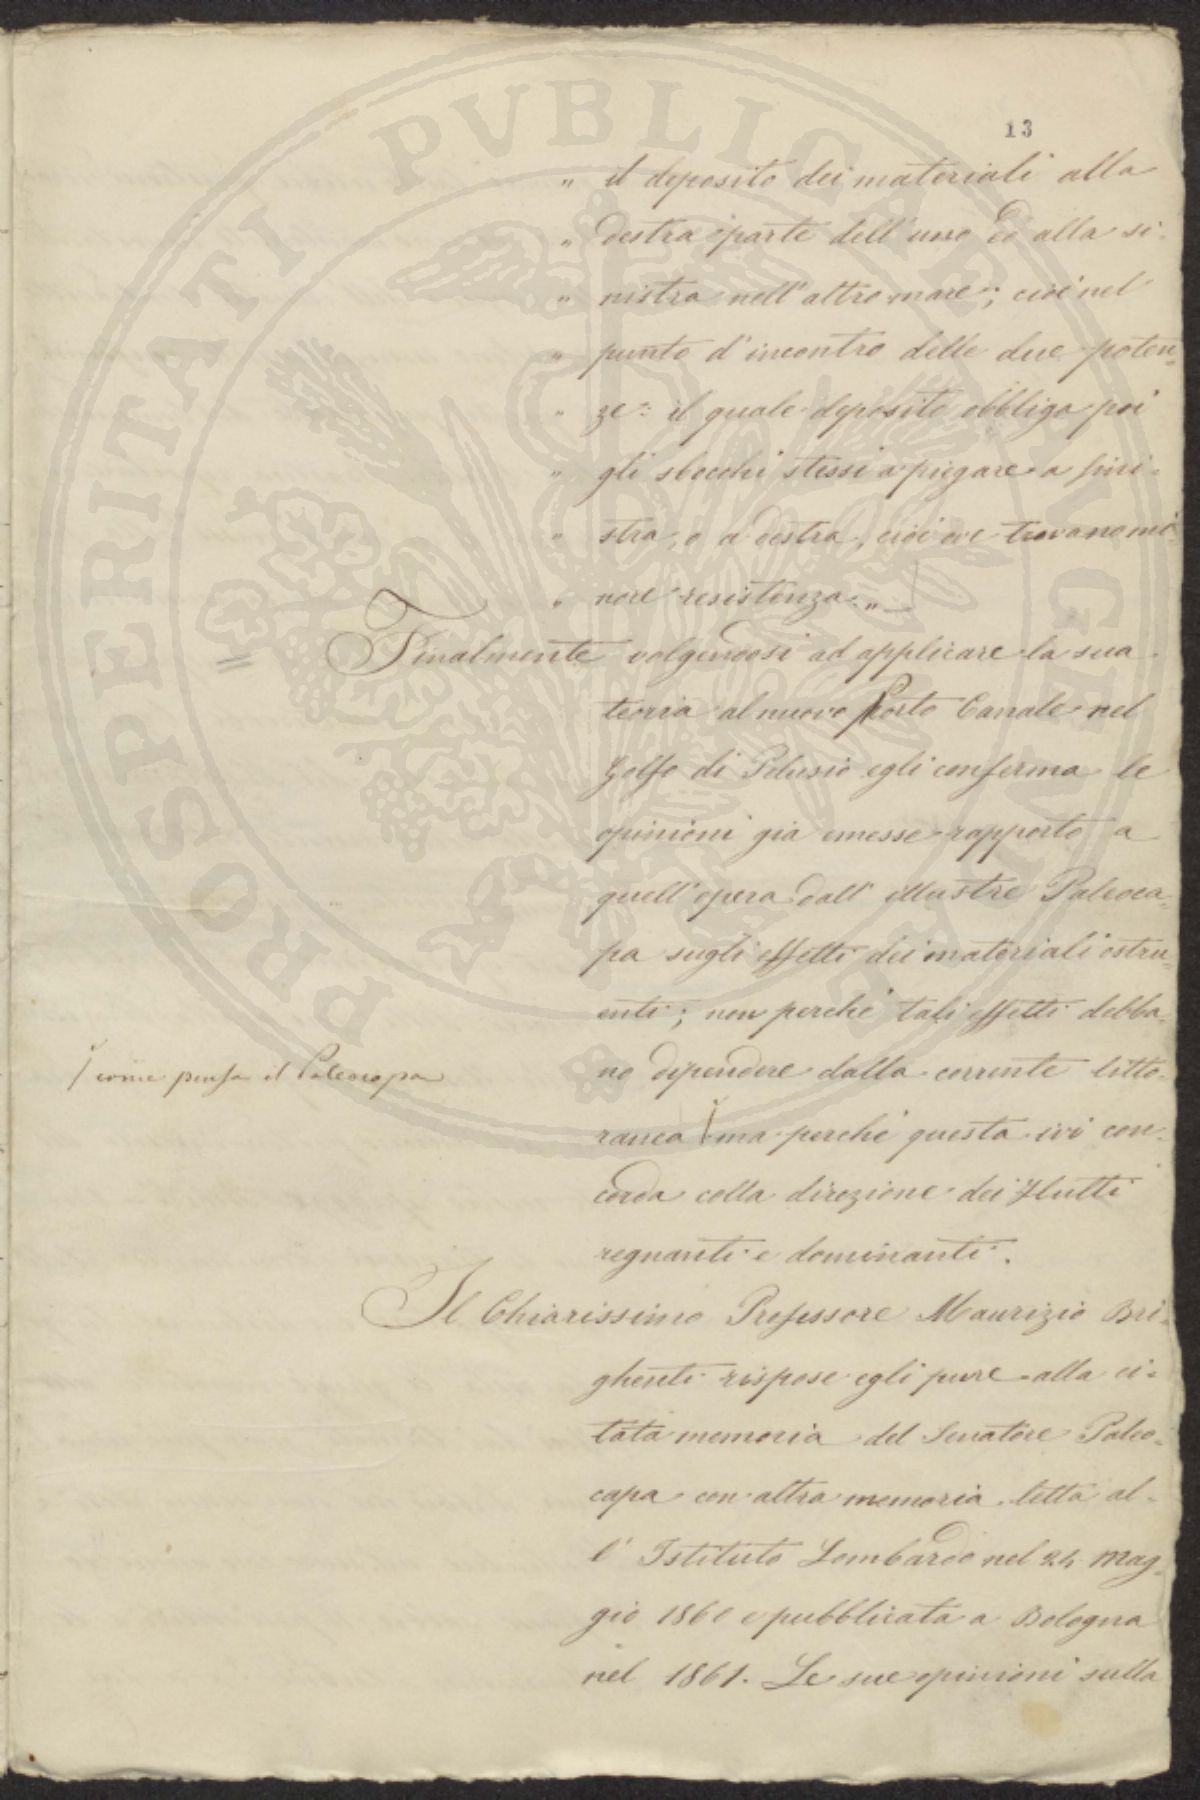 13
„ il deposito dei materiali alla
„ destra parte dell'uno ed alla si-
„ nistra nell'altro mare; cioè nel
„ punto d'incontro delle due poten-
„ ze: il quale deposito obbliga poi
„ gli sbocchi stessi a piegare a sini-
„ stra, o a destra, cioè ove trovano mi-
„ nore resistenza. „
Finalmente volgendosi ad applicare la sua
teoria al nuovo Porto Canale nel
Golfo di Pelusio egli conferma le
opinioni già emesse rapporto a
quell'opera dall'illustre Paleoca-
pa sugli effetti dei materiali ostru-
enti; non perchè tali effetti debba-
no dipendere dalla corrente litto-
ranea ma perchè questa ivi con-
corda colla direzione dei flutti
regnanti e dominanti.
come pensa il Paleocapa
Il Chiarissimo Professore Maurizio Bri-
ghenti rispose egli pure alla ci-
tata memoria del Senatore Paleo-
capa con altra memoria letta al-
l'Istituto Lombardo nel 24 Mag-
gio 1860 e pubblicata a Bologna
nel 1861. Le sue opinioni sulla
PROSPERITATI PVBLICAE AVGENDAE